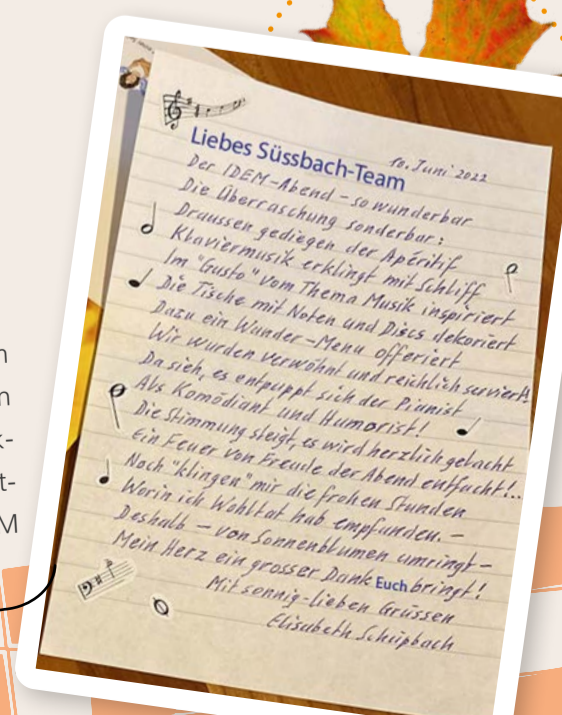 10. Juni 2022
Liebes Süssbach-Team
Der IDEM-Abend – so wunderbar
Die Überraschung sonderbar:
Draussen gediegen der Apéritif
Klaviermusik erklingt mit Schliff
Im "Gusto" vom Thema Musik inspiriert
Die Tische mit Noten und Discs dekoriert
Dazu ein Wunder-Menu offeriert
Wir wurden verwöhnt und reichlich serviert!
Da sieh, es entpuppt sich der Pianist
Als Komödiant und Humorist!
Die Stimmung steigt, es wird herzlich gelacht
Ein Feuer von Freude der Abend entfacht!..
Noch "klingen" mir die frohen Stunden
Worin ich Wohltat hab empfunden. –
Deshalb – von Sonnenblumen umringt –
Mein Herz ein grosser Dank Euch bringt!
Mit sonnig-lieben Grüssen
Elisabeth Schüpbach
n
n
k-
t-
M